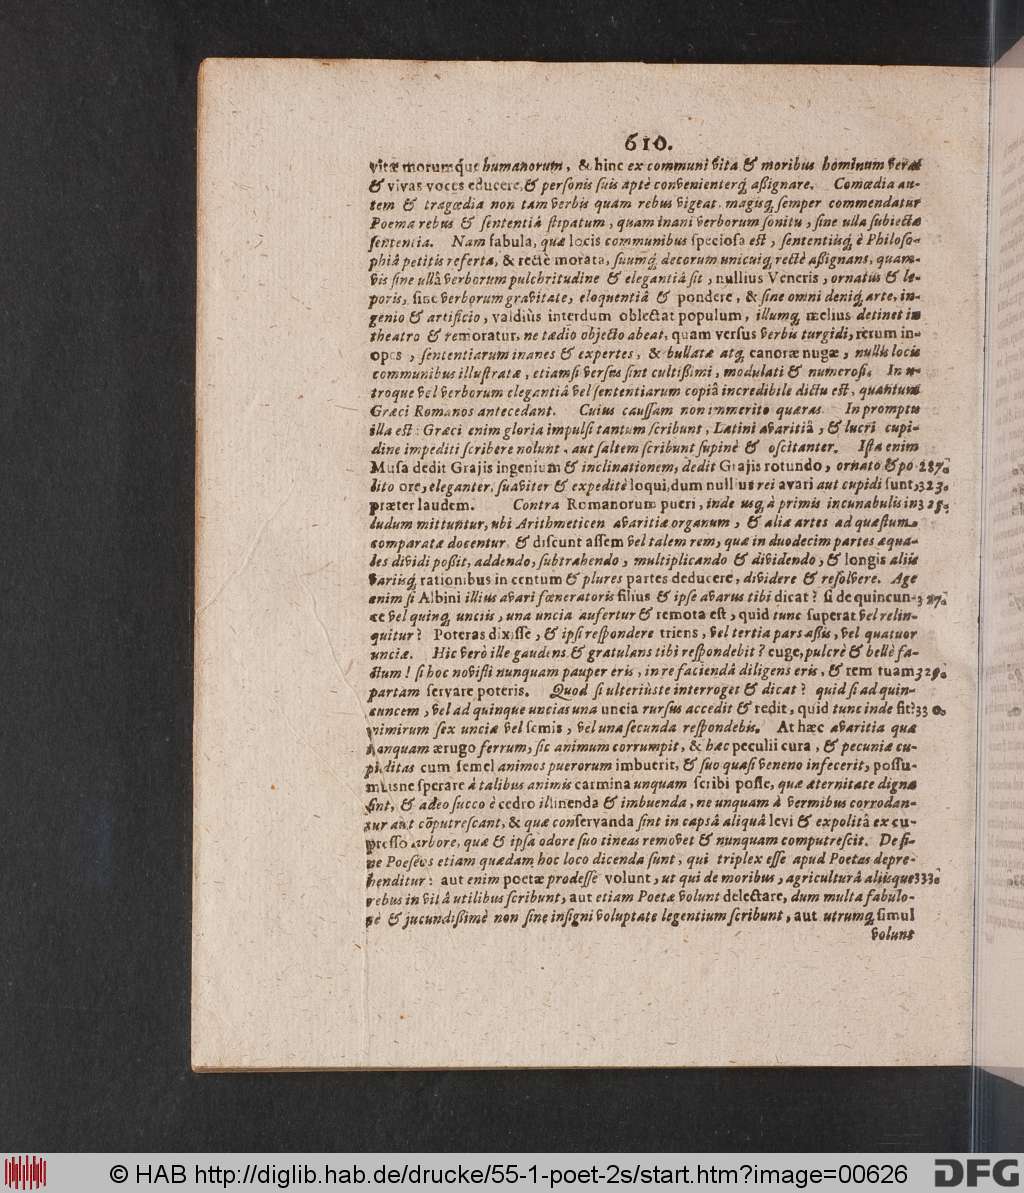 610.
vitæ morumque humanorum, & hinc ex communi vita & moribus hominum veras
& vivas voces educere, & personis suis aptè convenienterq́ aßignare. Comœdia au-
tem & tragœdia non tam verbis quam rebus vigeat, magisq́ semper commendatur
Poema rebus & sententiâ stipatum, quam inani verborum sonitu, sine ulla subiectæ
sententia. Nam fabula, quæ locis communibus speciosa est, sententiisq́ è Philoso-
phiâ petitis referta, & rectè morata, suumq́ decorum unicuiq́ rectè aßignans, quam-
vis sine ullâ verborum pulchritudine & elegantiâ sit, nullius Veneris, ornatûs & le-
poris, sine verborum gravitate, eloquentiâ & pondere, & sine omni deniq́ arte, in-
genio & artificio, valdiùs interdum oblectat populum, illumq́ melius detinet in
theatro & remoratur, ne tædio objecto abeat, quam versus verbis turgidi, rerum in-
opes, sententiarum inanes & expertes, & bullatæ atq́ canoræ nugæ, nullis locis
communibus illustratæ, etiamsi versus sint cultißimi, modulati & numerosi. In u-
troque vel verborum elegantiâ vel sententiarum copiâ incredibile dictu est, quantum
Græci Romanos antecedant. Cuius caussam non immerito quæras. In promptu
illa est: Græci enim gloria impulsi tantum scribunt, Latini avaritiâ, & lucri cupi-
dine impediti scribere nolunt, aut saltem scribunt supinè & oscitanter. Ista enim
Musa dedit Grajis ingenium & inclinationem, dedit Grajis rotundo, ornato & po- 287.
lito ore, eleganter, suaviter & expeditè loqui, dum nullius rei avari aut cupidi sunt, 323.
præter laudem. Contra Romanorum pueri, inde usq́ à primis incunabulis in 325.
ludum mittuntur, ubi Arithmeticen avaritiæ organum, & aliæ artes ad quæstum
comparatæ docentur & discunt assem vel talem rem, quæ in duodecim partes æqua-
les dividi poßit, addendo, subtrahendo, multiplicando & dividendo, & longis aliis
variisq́ rationibus in centum & plures partes deducere, dividere & resolvere. Age
enim si Albini illius avari fœneratoris filius & ipse avarus tibi dicat? si de quincun- 327.
ce vel quinq́ unciis, una uncia aufertur & remota est, quid tunc superat vel relin-
quitur? Poteras dixisse, & ipsi respondere triens, vel tertia pars assis, vel quatuor
unciæ. Hic verò ille gaudens & gratulans tibi respondebit? euge, pulcrè & bellè fa-
ctum! si hoc novisti nunquam pauper eris, in re faciendâ diligens eris, & rem tuam 329.
partam servare poteris. Quod si ulteriùs te interroget & dicat? quid si ad quin-
cuncem, vel ad quinque uncias una uncia rursus accedit & redit, quid tunc inde fit? 330.
nimirum sex unciæ vel semis, vel una secunda respondebis. At hæc avaritia quæ
tanquam ærugo ferrum, sic animum corrumpit, & hæc peculii cura, & pecuniæ cu-
piditas cum semel animos puerorum imbuerit, & suo quasi veneno infecerit, possu-
musne sperare à talibus animis carmina unquam scribi posse, quæ æternitate digna
sint, & adeo succo è cedro illinenda & imbuenda, ne unquam à vermibus corrodan-
tur aut cōputrescant, & quæ conservanda sint in capsâ aliquâ levi & expolitâ ex cu-
presso arbore, quæ & ipsa odore suo tineas removet & nunquam computrescit. De fi-
ne Poeseos etiam quædam hoc loco dicenda sunt, qui triplex esse apud Poetas depre-
henditur: aut enim poetæ prodesse volunt, ut qui de moribus, agriculturâ aliisque 333.
rebus in vitâ utilibus scribunt, aut etiam Poetæ volunt delectare, dum multa fabulo-
sè & jucundißimè non sine insigni voluptate legentium scribunt, aut utrumq́ simul
volunt
© HAB http://diglib.hab.de/drucke/55-1-poet-2s/start.htm?image=00626
DFG